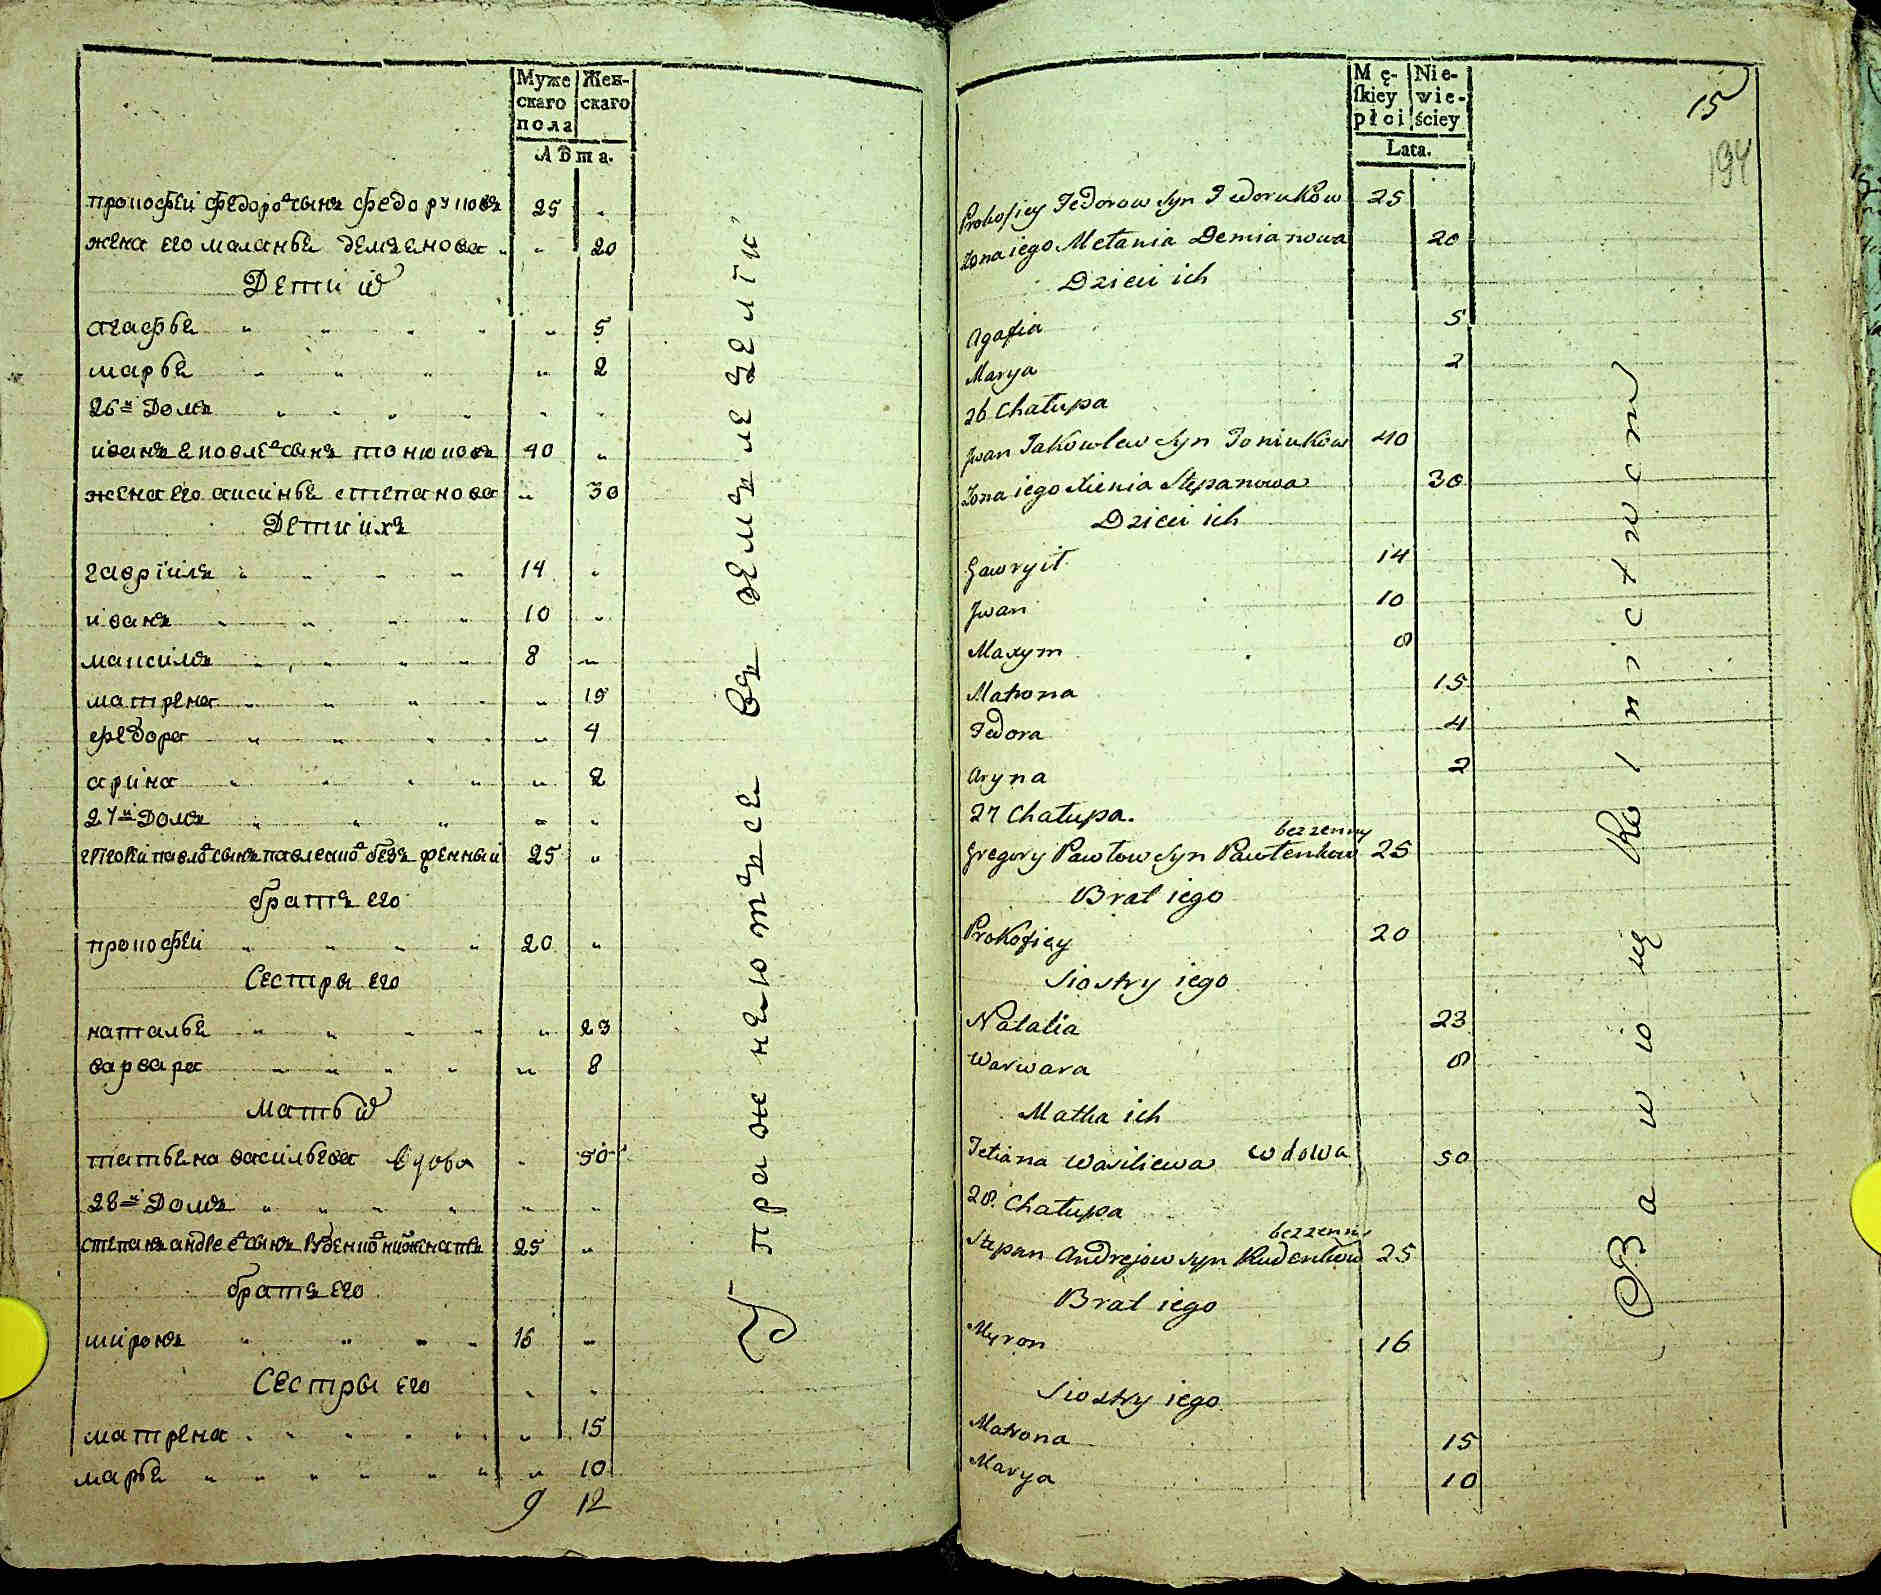 Муже Жен-
скаго скаго
пола
Лѣта.
прокофей федоровъ сынъ федоруковъ 25 „
жена его маланья демьянова „ 20
Дети их
агафья „ 5
марья „ 2
26й Домъ
иванъ яковлевъ сынъ тонюковъ 40 „
жена его аксинья степанова „ 30
Дети ихъ
гавріилъ 14 „
иванъ 10 „
максимъ 8 „
матрена „ 15
федора „ 4
арина „ 2
27й Домъ
григорей павловъ сынъ павленковъ 25 „
братъ его
прокофей 20 „
Сестры его
наталья „ 23
варвара „ 8
Мать их
татьяна васильева вдова „ 50
28й Домъ
степанъ андреевъ сынъ руденковъ неженатъ 25 „
братъ его
миронъ 16 „
Сестры его „ „
матрена „ 15
марья „ 10
9 12
Упражнеютъся въ земъледелги
Mę- Nie-
ſkiey wie-
płci ściey
Lata.
15
194
Prokofiey Fedorow syn Fedorukow 25
Zona iego Melania Demianowa 20
Dzieci ich
Agafia 5
Marya 2
26 Chałupa
Jwan Jakowlew syn Toniukow 40
Zona iego Xienia Stepanowa 30
Dzieci ich
Gawryił 14
Jwan 10
Maxym 8
Matrona 15
Fedora 4
Aryna 2
27 Chałupa.
bezzenny
Gregory Pawłow syn Pawłenkow 25
Brat iego
Prokofiey 20
Siostry iego
Natalia 23
Warwara 8
Matka ich
Tetiana Wasiliewa wdowa 50
28. Chałupa
bezzenny
Stepan Andrejow syn Rudenkow 25
Brat iego
Myron 16
Siostry iego
Matrona 15
Marya 10
Bawią się Rolnictwem